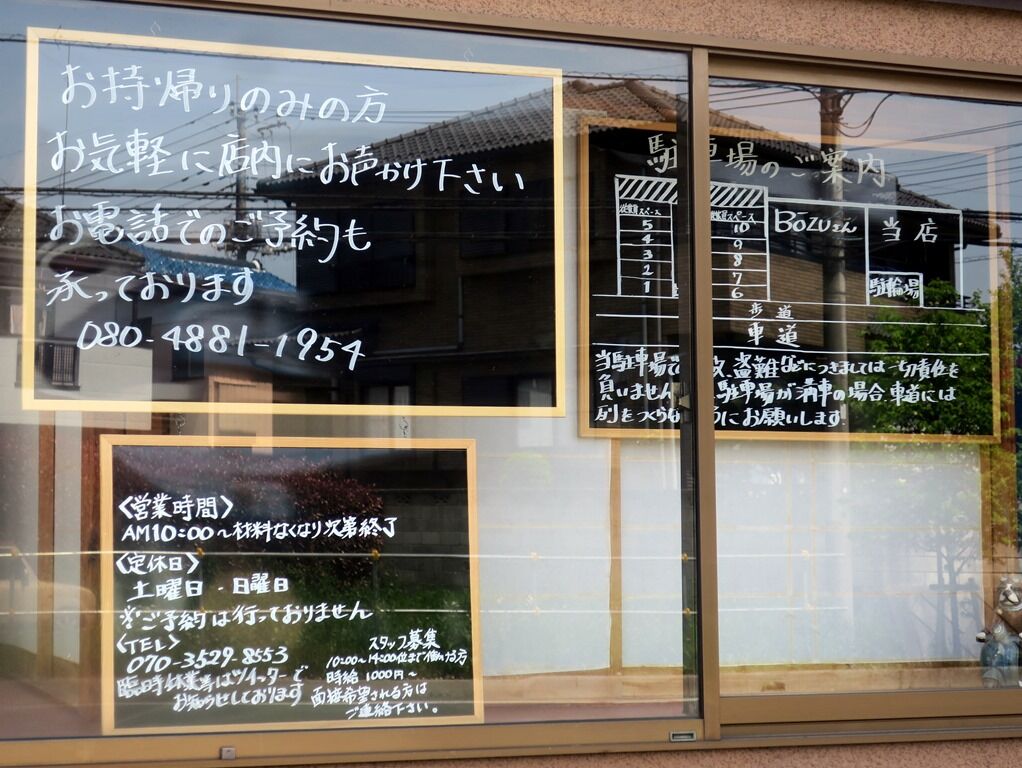 お持帰りのみの方
お気軽に店内にお声かけ下さい
お電話でのご予約も
承っております
080-4881-1954
〈営業時間〉
AM10:00〜材料なくなり次第終了
〈定休日〉
土曜日・日曜日
※ご予約は行っておりません
〈TEL〉
070-3529-8553
臨時休業等はツイッターで
お知らせしております
スタッフ募集
10:00〜14:00位まで働ける方
時給1000円〜
面接希望される方は
ご連絡下さい。
駐車場のご案内
従業員スペース
5
4
3
2
1
スペース
10
9
8
7
6
BōZUさん
当店
駐輪場
歩道
車道
当駐車場で 盗難などにつきましては一切責任を
負いません 駐車場が満車の場合、車道には
列をつくらな うにお願いします